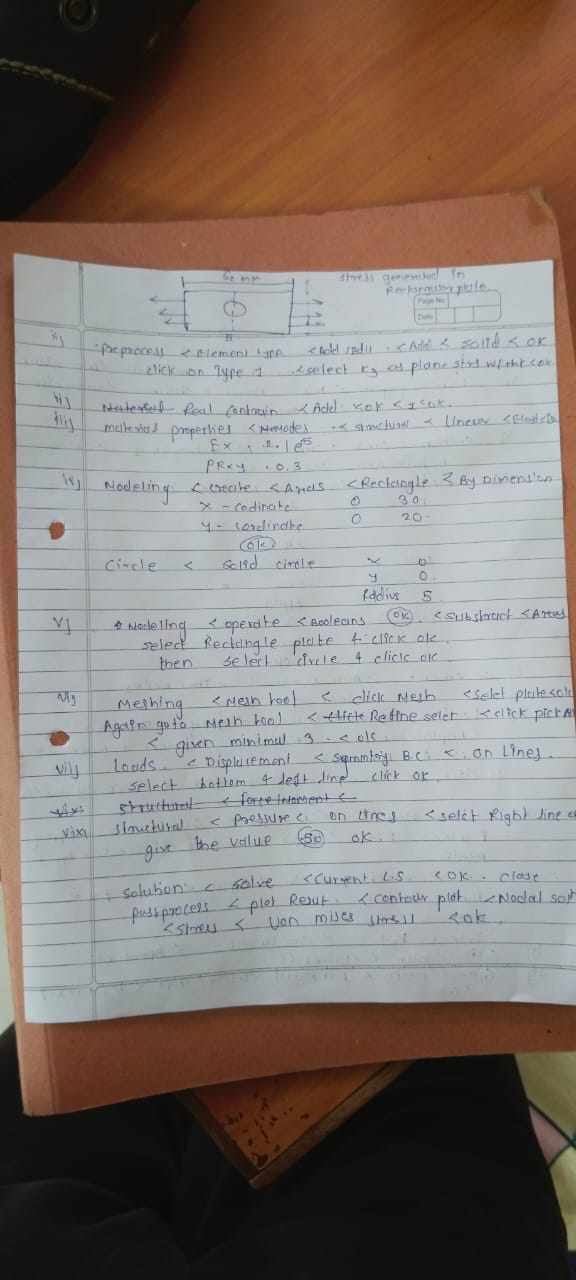 60 mm
stress generated in
Rectangular plate
Page No.
Date
B
i)
preprocess < Element type < Add / Edit < Add < Solid < OK
click on Type 1 < select K3 as plane strs w/thk < ok
ii)
Real Contrain < Add < ok < 1 < ok.
iii)
material properties < Models < structural < Linear < Elastic
Ex . 2.1e5
PRxy . 0.3
iv)
Modeling < create < Areas < Rectangle < By Dimension
X - codinate 0 30
Y - cordinate 0 20
OK
Circle < Solid circle X 0
Y 0.
Radius 5
V)
Modeling < operate < Booleans OK < Substract < Areas
select Rectangle plate & click ok
then select circle & click ok
Vi)
Meshing < Mesh tool < click Mesh < Selet plate < ok
Again goto Mesh tool < Refine selet < click pick All
< given minimal 3 < ok
Vii)
Loads < Displacement < Symmtry B.C. < on Lines.
select bottom & left line click ok
structural < force/moment <
structural < pressure < on Lines < selct Right line
give the value 50 ok.
Solution < solve < current L.S. < OK. close
postprocess < plot Resut. < contour plot < Nodal soln
< stress < von mises stress < ok